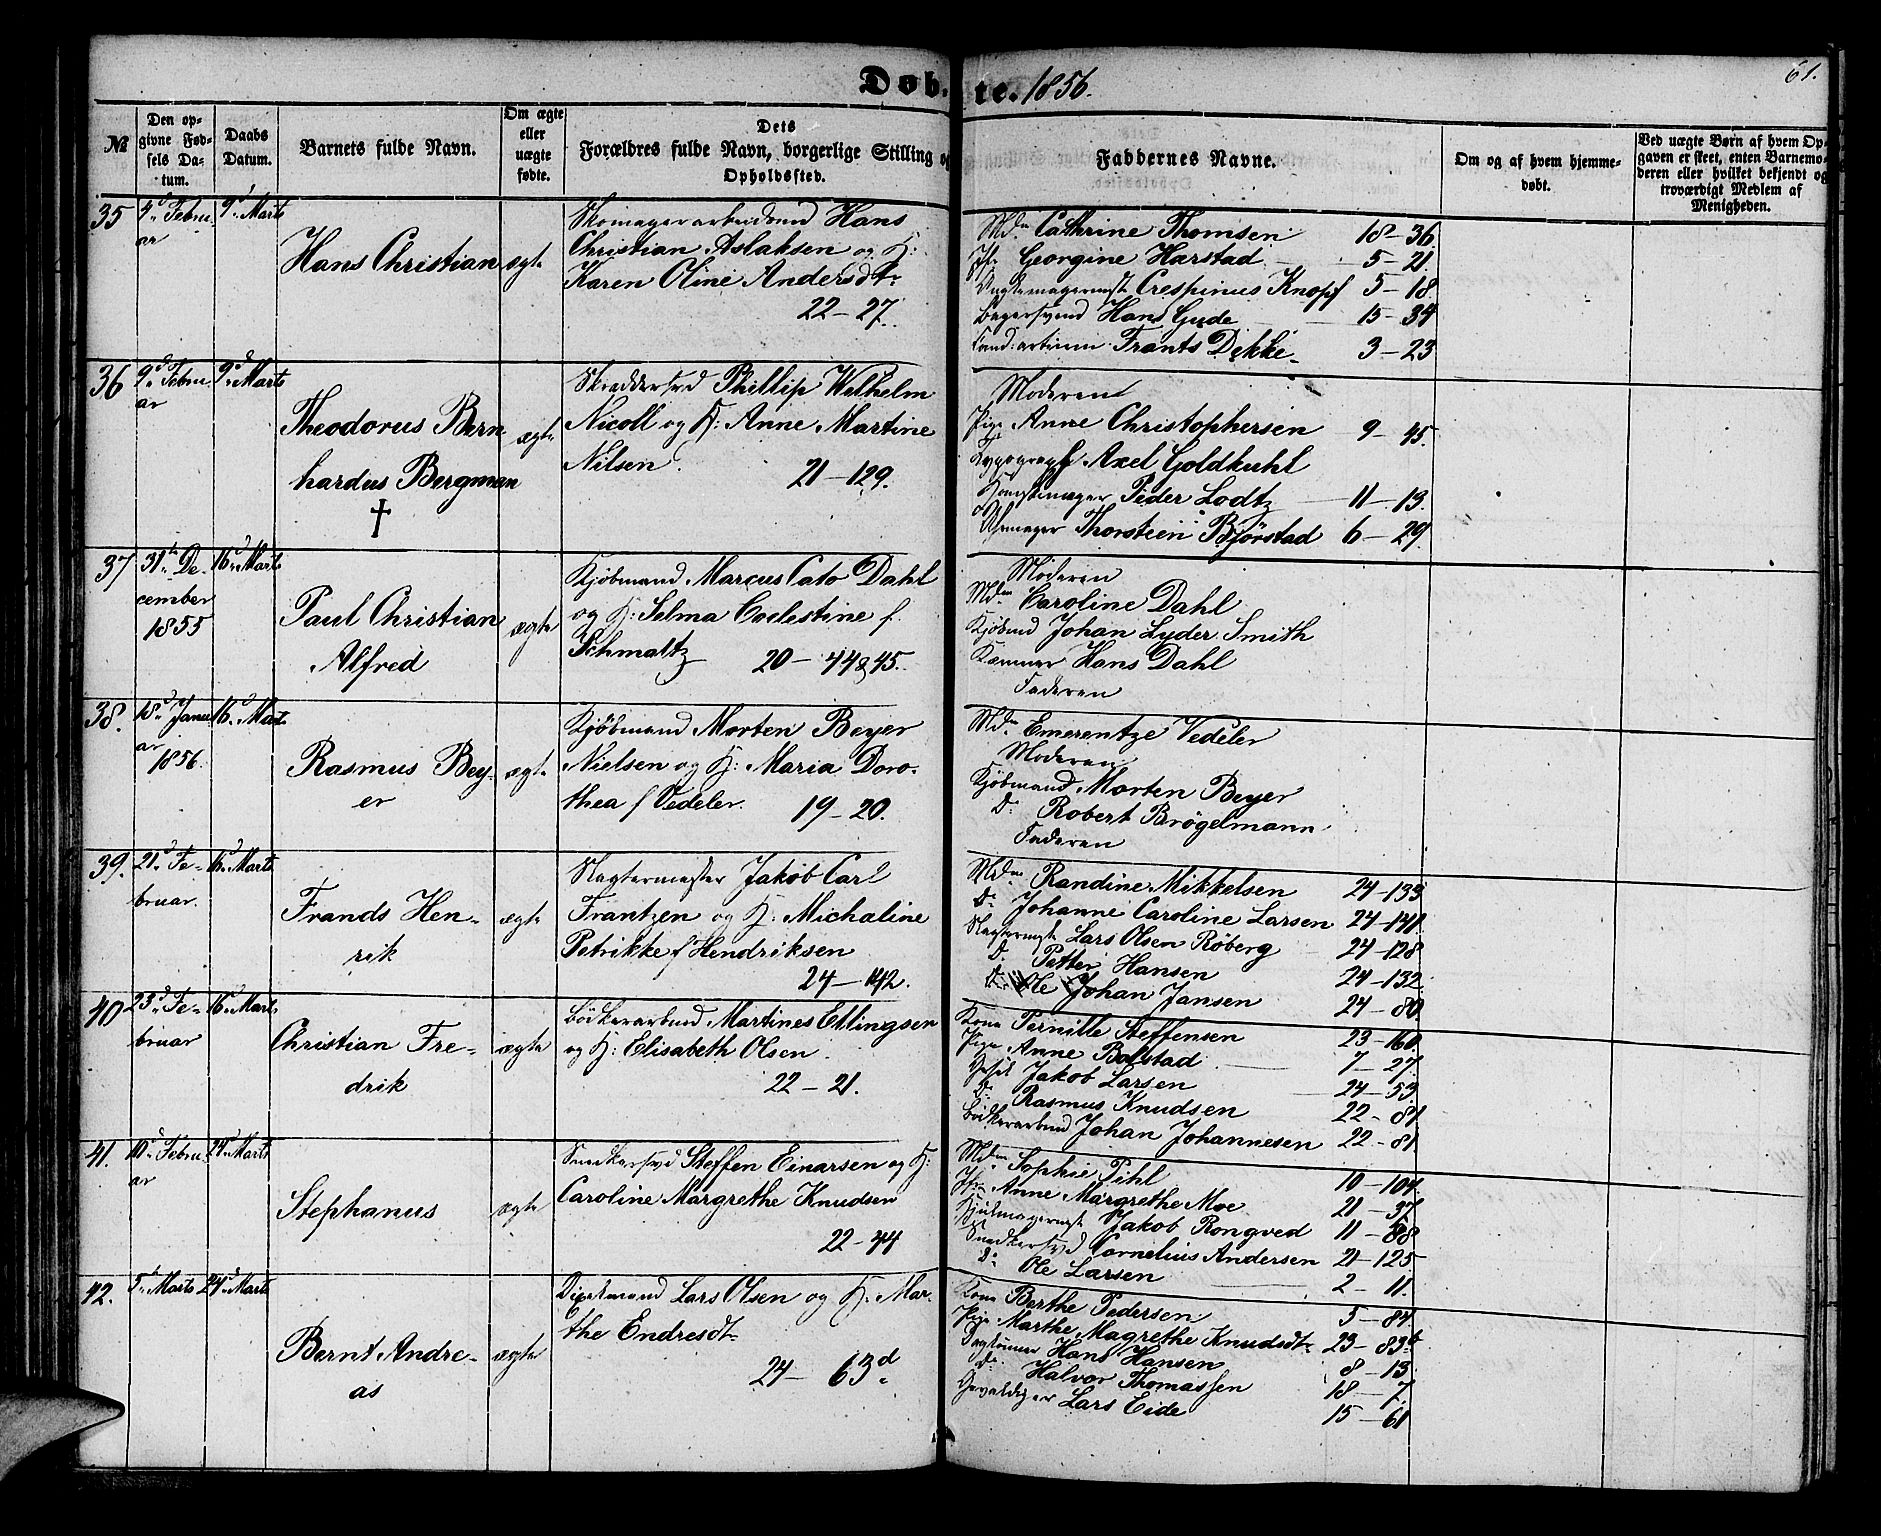 Døb-
te. 1856.
61.
№
Den op-
givne Fød-
sels Da-
tum.
Daabs
Datum.
Barnets fulde Navn.
Om ægte
eller
uægte
fødte.
Dets
Forældres fulde Navn, borgerlige Stilling og
Opholdssted.
Faddernes Navne.
Om og af hvem hjemme-
døbt.
Ved uægte Børn af hvem Op-
gaven er skeet, enten Barnemo-
deren eller hvilket bekjendt og
troværdigt Medlem af
Menigheden.
35
4d Febru
ar
9d Marts
Hans Christian
ægte
Skomagerarbeidsmd Hans
Christian Aslaksen og H:
Karen Oline Andersdtr
22-27.
Mdm Cathrine Thomsen 18-36
Jfr Georgine Harstad 5-21.
Crespinus Knopf 5-18.
Bagersvend Hans Gude 15-34
Cand: artium Frants Dekke 3-23
36
9d Febru
ar
9d Marts
Theodorus Bern
hardus Bergman
†
ægte
Skræddersvd Phillip Wilhelm
Nicoll og H: Anne Martine
Nilsen. 21-129.
Moderen
Pige Anne Christophersen 9-45.
Typograph Axel Goldkuhl
Peder Lodtz 11-13.
Uhrmager Thorsteen Bjørstad 6-29.
37
31te De-
cember
1855
16d Marts
Paul Christian
Alfred
ægte
Kjøbmand Marcus Cato Dahl
og H: Selma Coelestine f.
Schmaltz 20-44&45.
Moderen
Mdm Caroline Dahl
Kjøbmd Johan Lyder Smith
Kæmner Hans Dahl
Faderen
38.
18d Janu
ar
1856.
16d Marts
Rasmus Bey-
er
ægte
Kjøbmand Morten Beyer
Nielsen og H: Maria Doro-
thea f Vedeler. 19-20.
Mdm Emerentze Vedeler
Moderen
Kjøbmand Morten Beyer
Do Robert Brøgelmann
Faderen
39.
21d Fe-
bruar.
16d Marts
Frands Hen-
rik
ægte
Slagtermester Jakob Carl
Frantzen og H: Michaline
Petrikke f Hendriksen
24-142.
Mdm Randine Mikkelsen 24-133
Do Johanne Caroline Larsen 24-141.
Slagtermstr Lars Olsen Røberg 24-128
Do Petter Hansen 24-132
Do Ole Johan Jansen 24-80.
40
23d Fe-
bruar
16d Marts
Christian Fre-
drik
ægte
Bødkerarbmd Martines Ellingsen
og H: Elisabeth Olsen.
22-21.
Kone Pernille Steffensen 23-160
Pige Anne Bolstad 7-27.
Jakob Larsen 24-53
Do Rasmus Knudsen 22-81
Bødkerarbmd Johan Johannesen 22-81.
41.
10d Febru
ar
24d Marts
Stephanus
ægte
Snedkersvd Steffen Einarsen og H:
Caroline Margrethe Knudsen
22-44
Mdm Sophie Pihl 10-104
Jfr Anne Margrethe Moe 21-37
Hjulmagermstr Jakob Rongved 11-88
Snedkersvd Cornelius Andersen 21-125
Do Ole Larsen 2-11.
42.
5d Marts
24d Marts
Bernt Andre-
as
ægte
Lars Olsen og H: Mar-
the Endresdtr
24-63d
Kone Berthe Pedersen 5-84
Pige Marthe Magrethe Knudsdtr 23-83b
Hans Hansen 8-13
Do Halvor Thomassen 18-7.
Gevaldiger Lars Eide 15-61